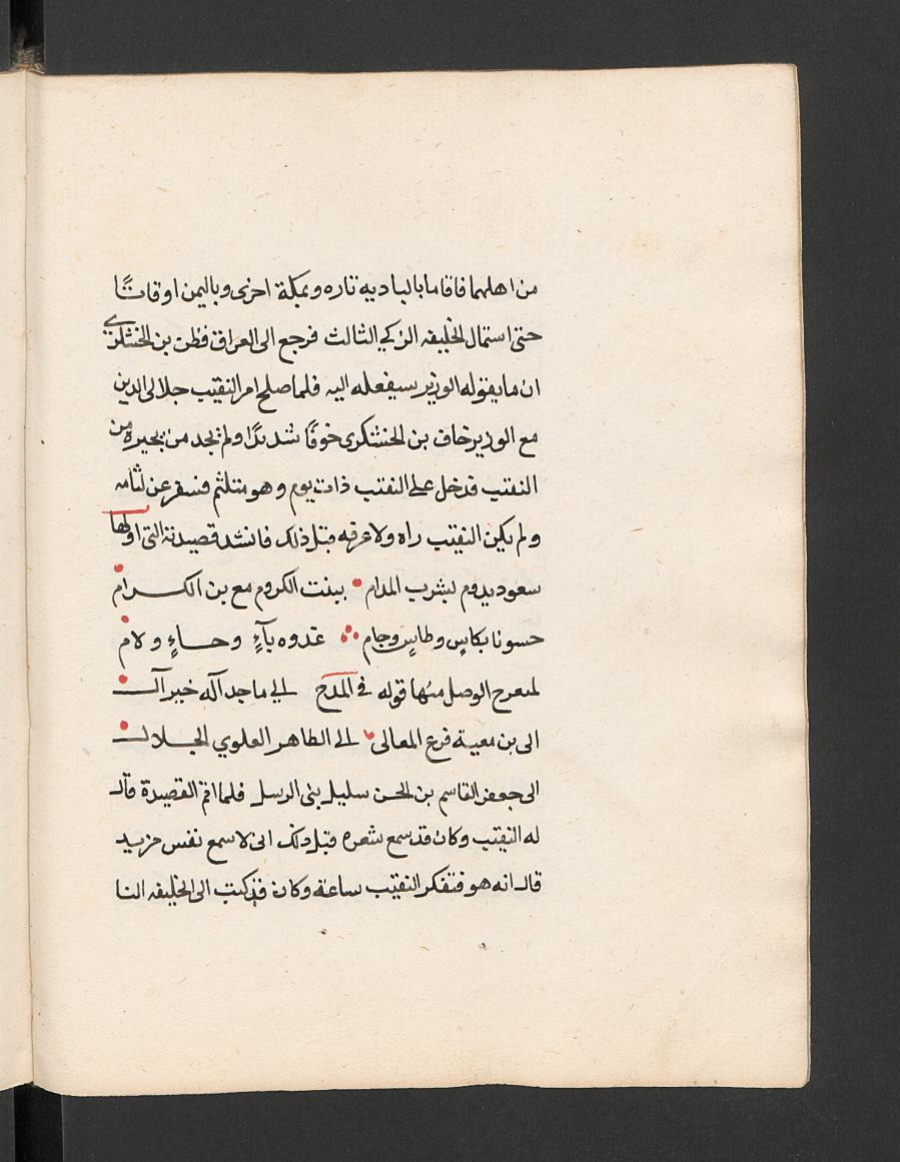 من اهلهما فاقاما بالباديه تاره وبمكة اخرى وباليمن اوقاتًا
حتى استمال الخليفه الزكي الثالث فرجع الى العراق فظن بن الخشكري
ان ما يقوله الوزير سيفعله اليه فلما صلح امر النقيب جلال الدين
مع الوزير خاف بن الخشكرى خوفًا شديدًا ولم يجد من يجيره من
النقيب فدخل على النقيب ذات يوم وهو متلثم فسفر عن لثامه
ولم يكن النقيب راه ولا عرفه قبل ذلك فانشد قصيدته التى اولها
سعود يدوم لشرب المدام ببنت الكروم مع بن الكرام
حسونا بكاسٍ وطاسٍ وجام غدوه بآءٍ وحاءٍ ولام
الوصل منها قوله في المدح الى ماجد اله خير آل
الى بن معية فرع المعالى الى الطاهر العلوي الجلال
الى جعفر القاسم بن الحسن سليل بنى الرسل فلما اتم القصيدة قال
له النقيب وكان قد سمع شعره قبل ذلك انى لاسمع نفس مزيد
قال انه هو فتفكر النقيب ساعة وكان قد كتب الى الخليفه النا